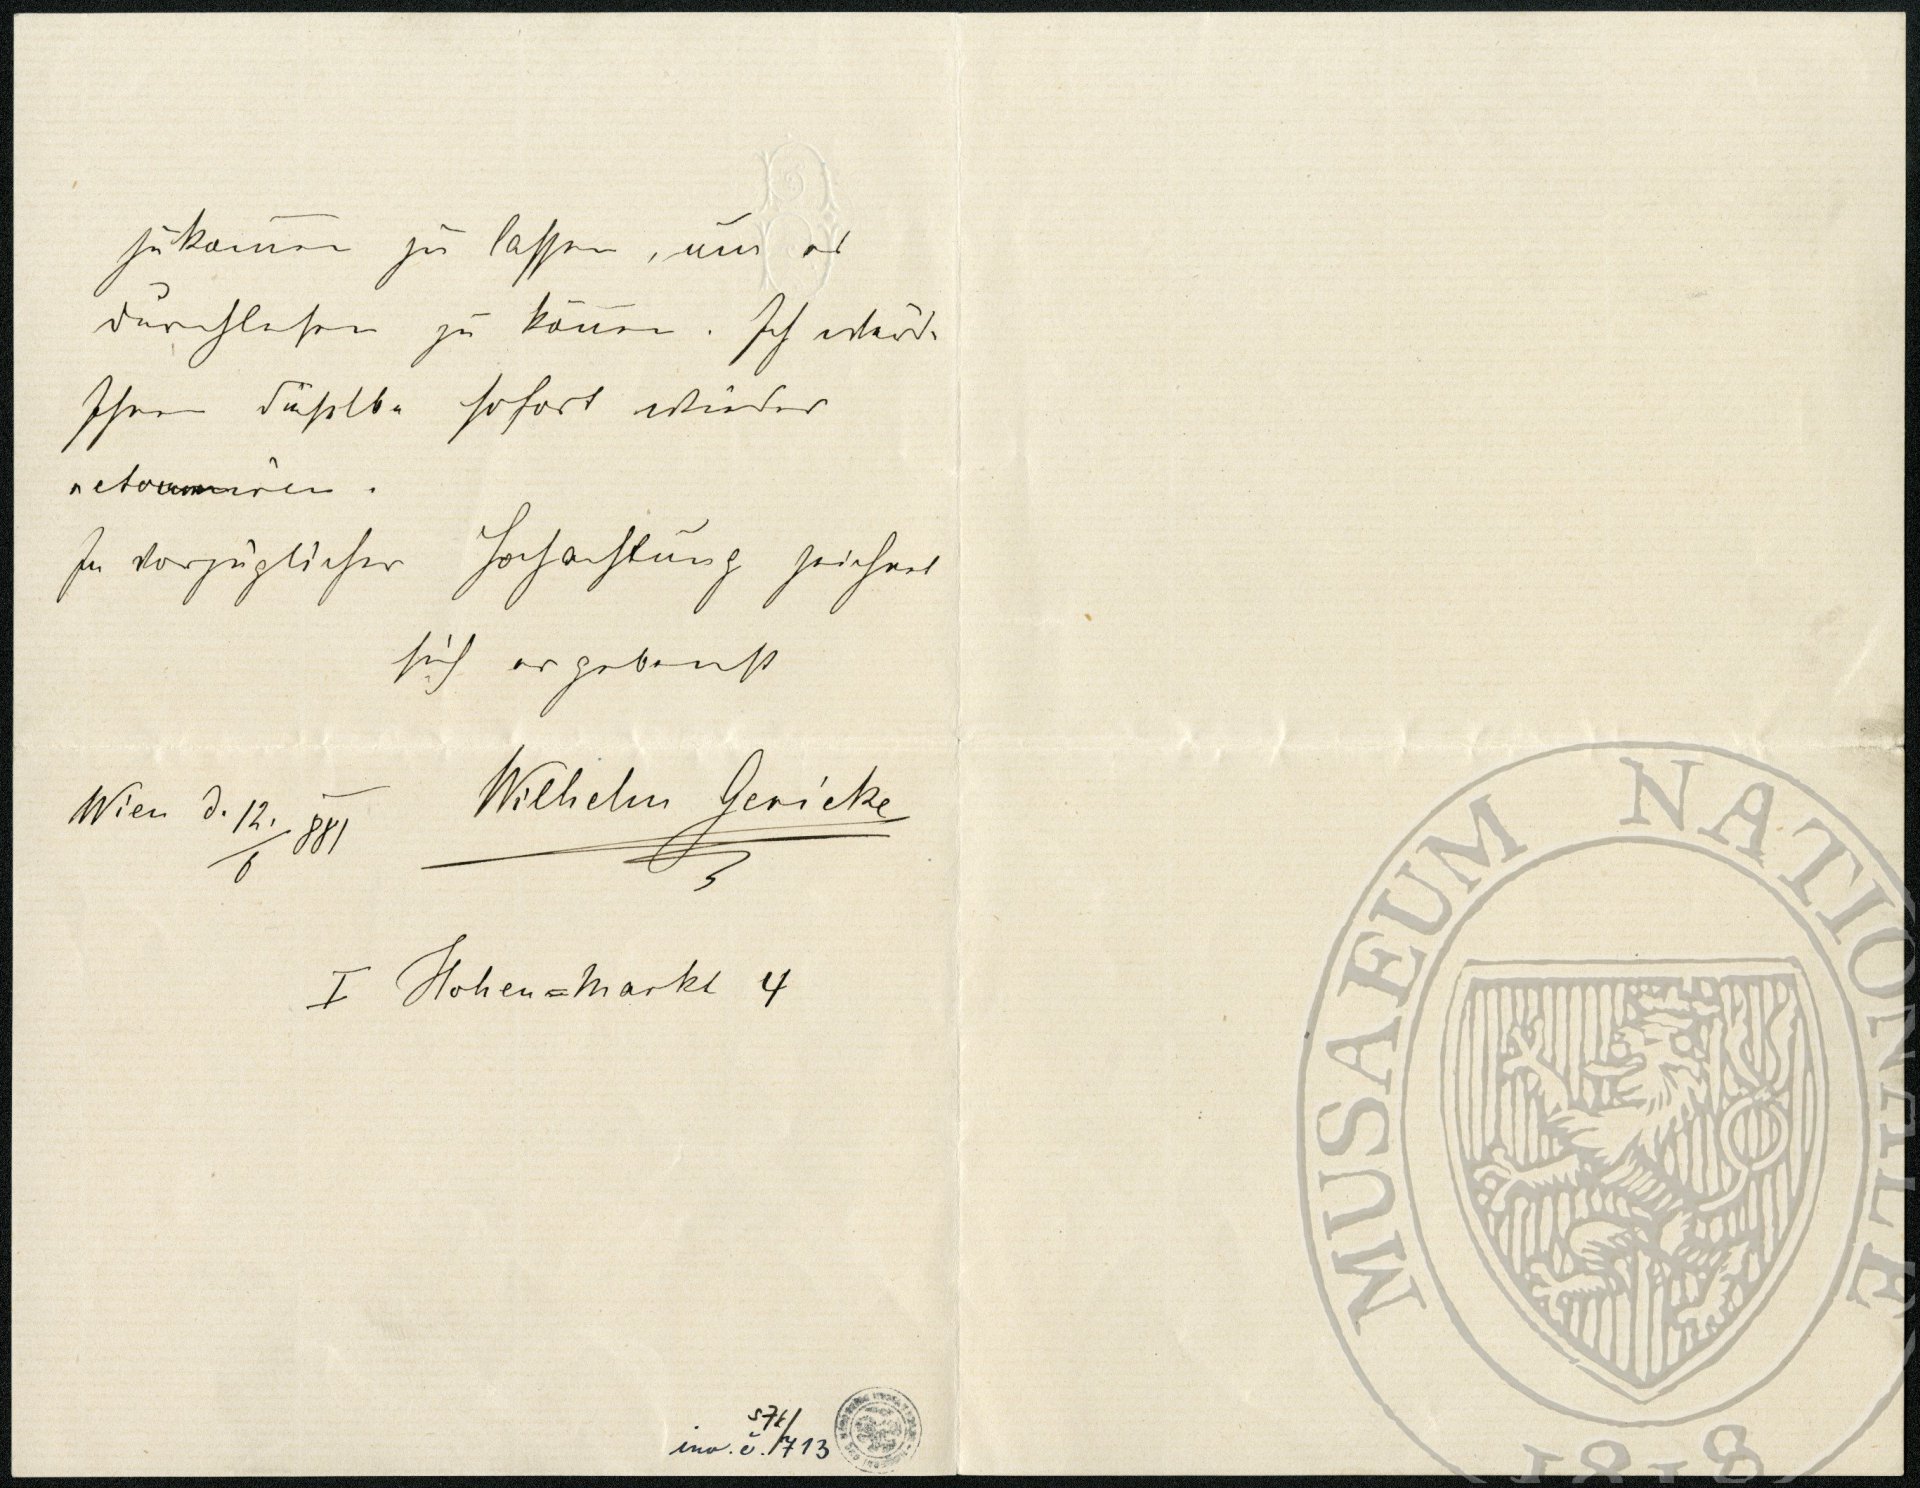 zukom̅en zu lassen, um es
durchlesen zu kön̅en. Ich würde
Ihnen dieselbe sofort wieder
retourniren.
In vorzüglicher Hochachtung zeichnet
sich ergebenst
Wien d. 12./6 881
Wilhelm Gericke
I Hohen=Markt 4
inv. č. 1713
MUSAEUM NATIONALE
1818